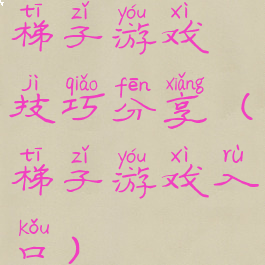 tī zǐ yóu xì
梯子游戏
jì qiǎo fēn xiǎng
技巧分享（
tī zǐ yóu xì rù
梯子游戏入
kǒu
口）